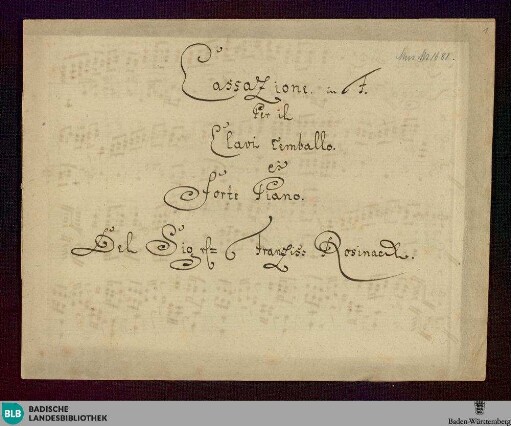 Cassazione. in F.
Per il
Clavi Cemballo.
ô
Forte Piano.
Del Sigre Franzis: Rosinack.
BLB
BADISCHE
LANDESBIBLIOTHEK
Baden-Württemberg